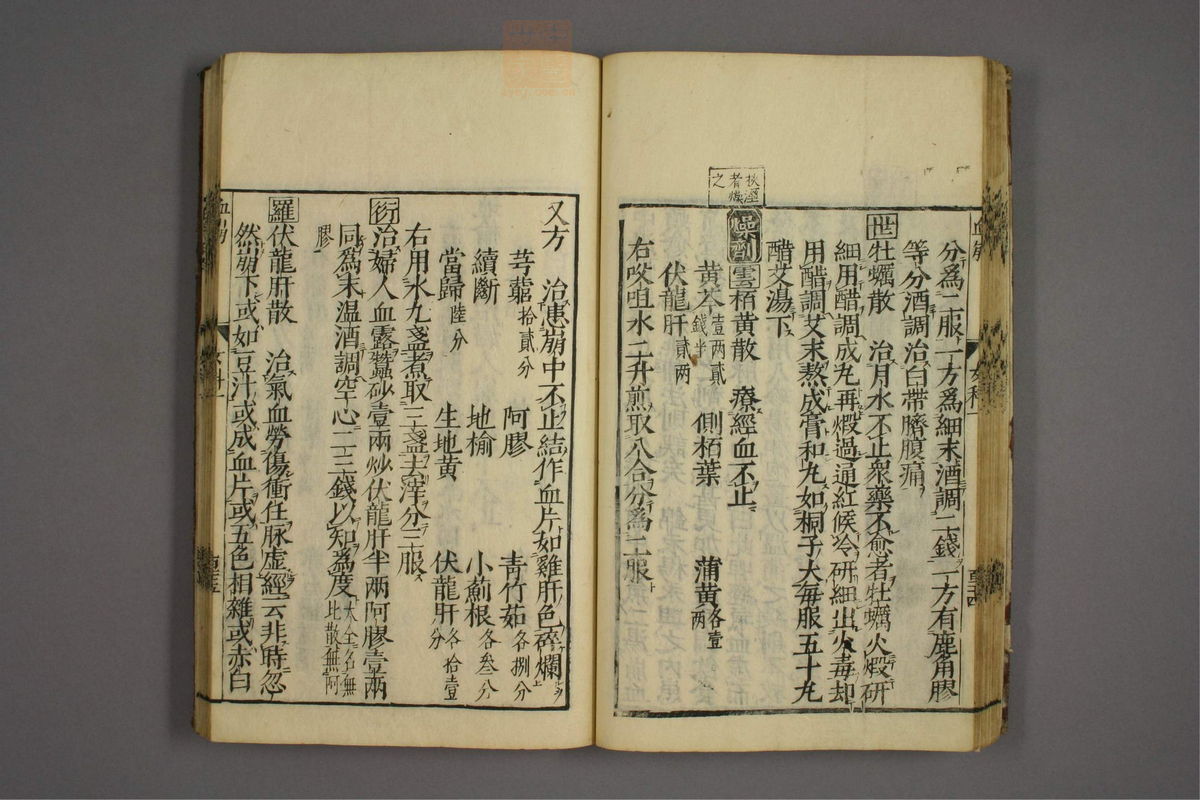 分爲二服一方爲細末酒調二錢一方有鹿角膠
等分酒調治白帶臍腹痛
世牡蠣散　治月水不止衆藥不愈者牡蠣火煆研
細用醋調成丸再煆過通紅候冷研細出火毒却
用醋調艾末熬成膏和丸如桐子大每服五十丸
醋艾湯下
燥劑 雲栢黃散　療經血不止
黃芩壹兩貳錢半　側栢葉　蒲黃各壹兩
伏龍肝貳兩
右㕮咀水二升煎取八合分爲二服
又方　治患崩中不止結作血片如雞肝色碎爛
芎藭拾貳分　阿膠　靑竹茹各捌分
續斷　地榆　小薊根各叁分
當歸陸分　生地黃　伏龍肝各拾壹分
右用水九盞煮取三盞去滓分三服
衍治婦人血露蠶砂壹兩炒伏龍肝半兩阿膠壹兩
同爲末溫酒調空心二三錢以知爲度大全名無比散無阿膠
羅伏龍肝散　治氣血勞傷衝任脉虛經云非時忽
然崩下或如豆汁或成血片或五色相雜或赤白